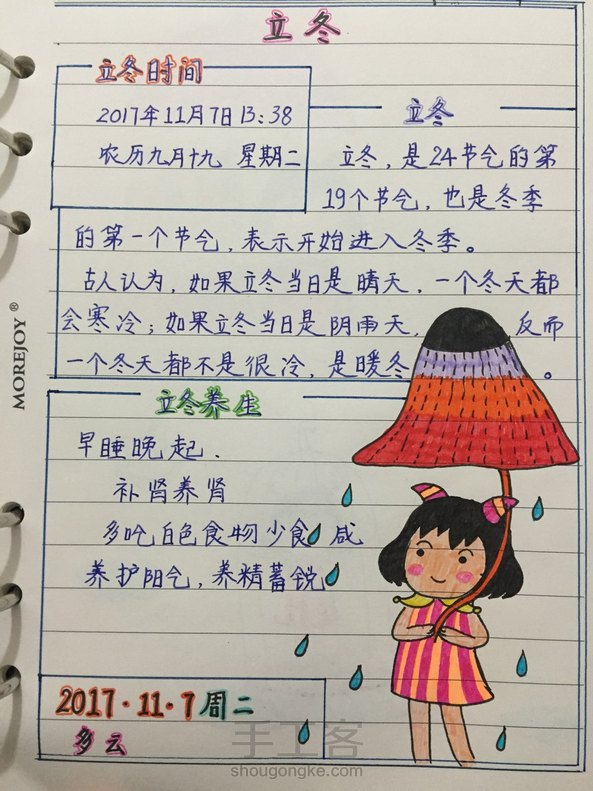 立冬
立冬时间
2017年11月7日13:38
农历九月十九 星期二
立冬
立冬，是24节气的第
19个节气，也是冬季
的第一个节气，表示开始进入冬季。
古人认为，如果立冬当日是晴天，一个冬天都
会寒冷；如果立冬当日是阴雨天，反而
一个冬天都不是很冷，是暖冬。
立冬养生
早睡晚起.
补肾养肾
多吃白色食物少食咸
养护阳气，养精蓄锐
2017·11·7周二
多云
MOREJOY®
手工客
shougongke.com